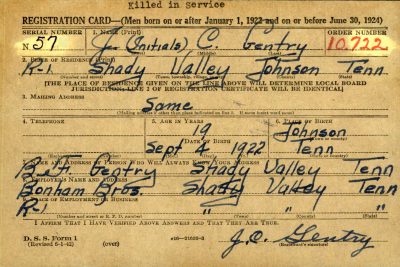 Killed in service
REGISTRATION CARD—(Men born on or after January 1, 1922 and on or before June 30, 1924)
SERIAL NUMBER 1. NAME (Print) ORDER NUMBER
N 57 J. (Initials) C. Gentry 10,722
(First) (Middle) (Last)
2. PLACE OF RESIDENCE (Print)
R-1 Shady Valley Johnson Tenn
(Number and street) (Town, township, village, or city) (County) (State)
[THE PLACE OF RESIDENCE GIVEN ON THE LINE ABOVE WILL DETERMINE LOCAL BOARD
JURISDICTION; LINE 2 OF REGISTRATION CERTIFICATE WILL BE IDENTICAL]
3. MAILING ADDRESS
Same
[Mailing address if other than place indicated on line 2. If same insert word same]
4. TELEPHONE 5. AGE IN YEARS 6. PLACE OF BIRTH
19 Johnson
DATE OF BIRTH
Sept 4 1922 Tenn
7. NAME AND ADDRESS OF PERSON WHO WILL ALWAYS KNOW YOUR ADDRESS
Gentry Shady Valley Tenn
8. EMPLOYER'S NAME AND ADDRESS
Bonham Bros. Shady Valley Tenn
9. PLACE OF EMPLOYMENT OR BUSINESS
R-1 " " "
(Number and street or R. F. D. number) (Town) (County) (State)
I AFFIRM THAT I HAVE VERIFIED ABOVE ANSWERS AND THAT THEY ARE TRUE.
D. S. S. Form 1
(Revised 6-1-42) (over) J.C. Gentry
(Registrant's signature)